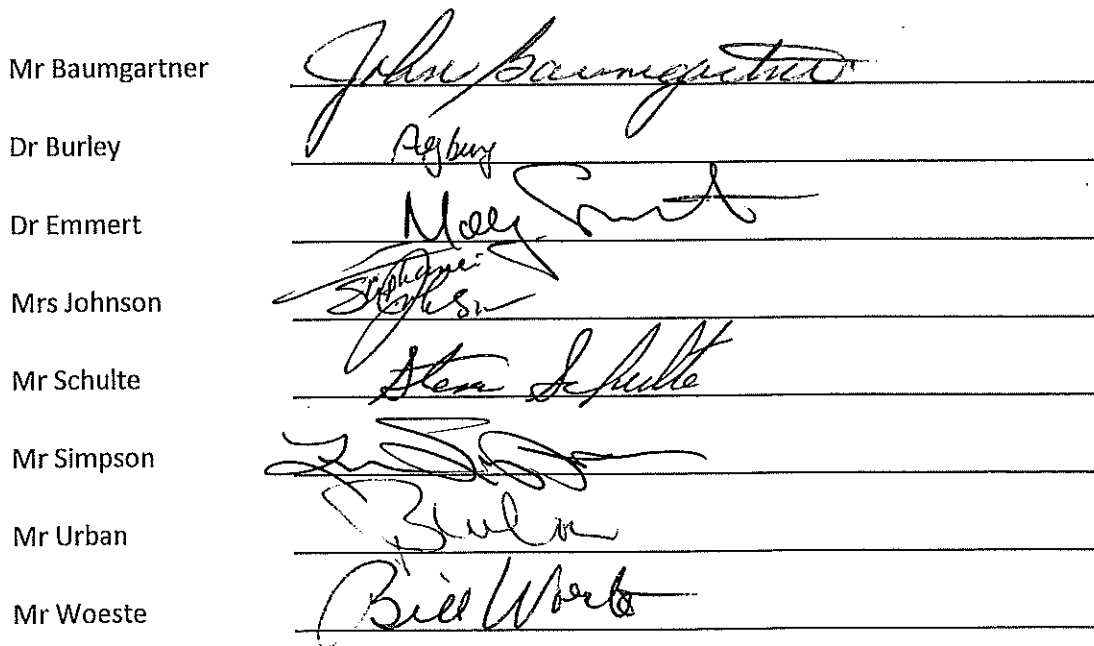 Mr Baumgartner John Baumgartner
Dr Burley
Dr Emmert Molly
Mrs Johnson Stephanie Johnson
Mr Schulte Steve Schulte
Mr Simpson
Mr Urban
Mr Woeste Bill Woeste